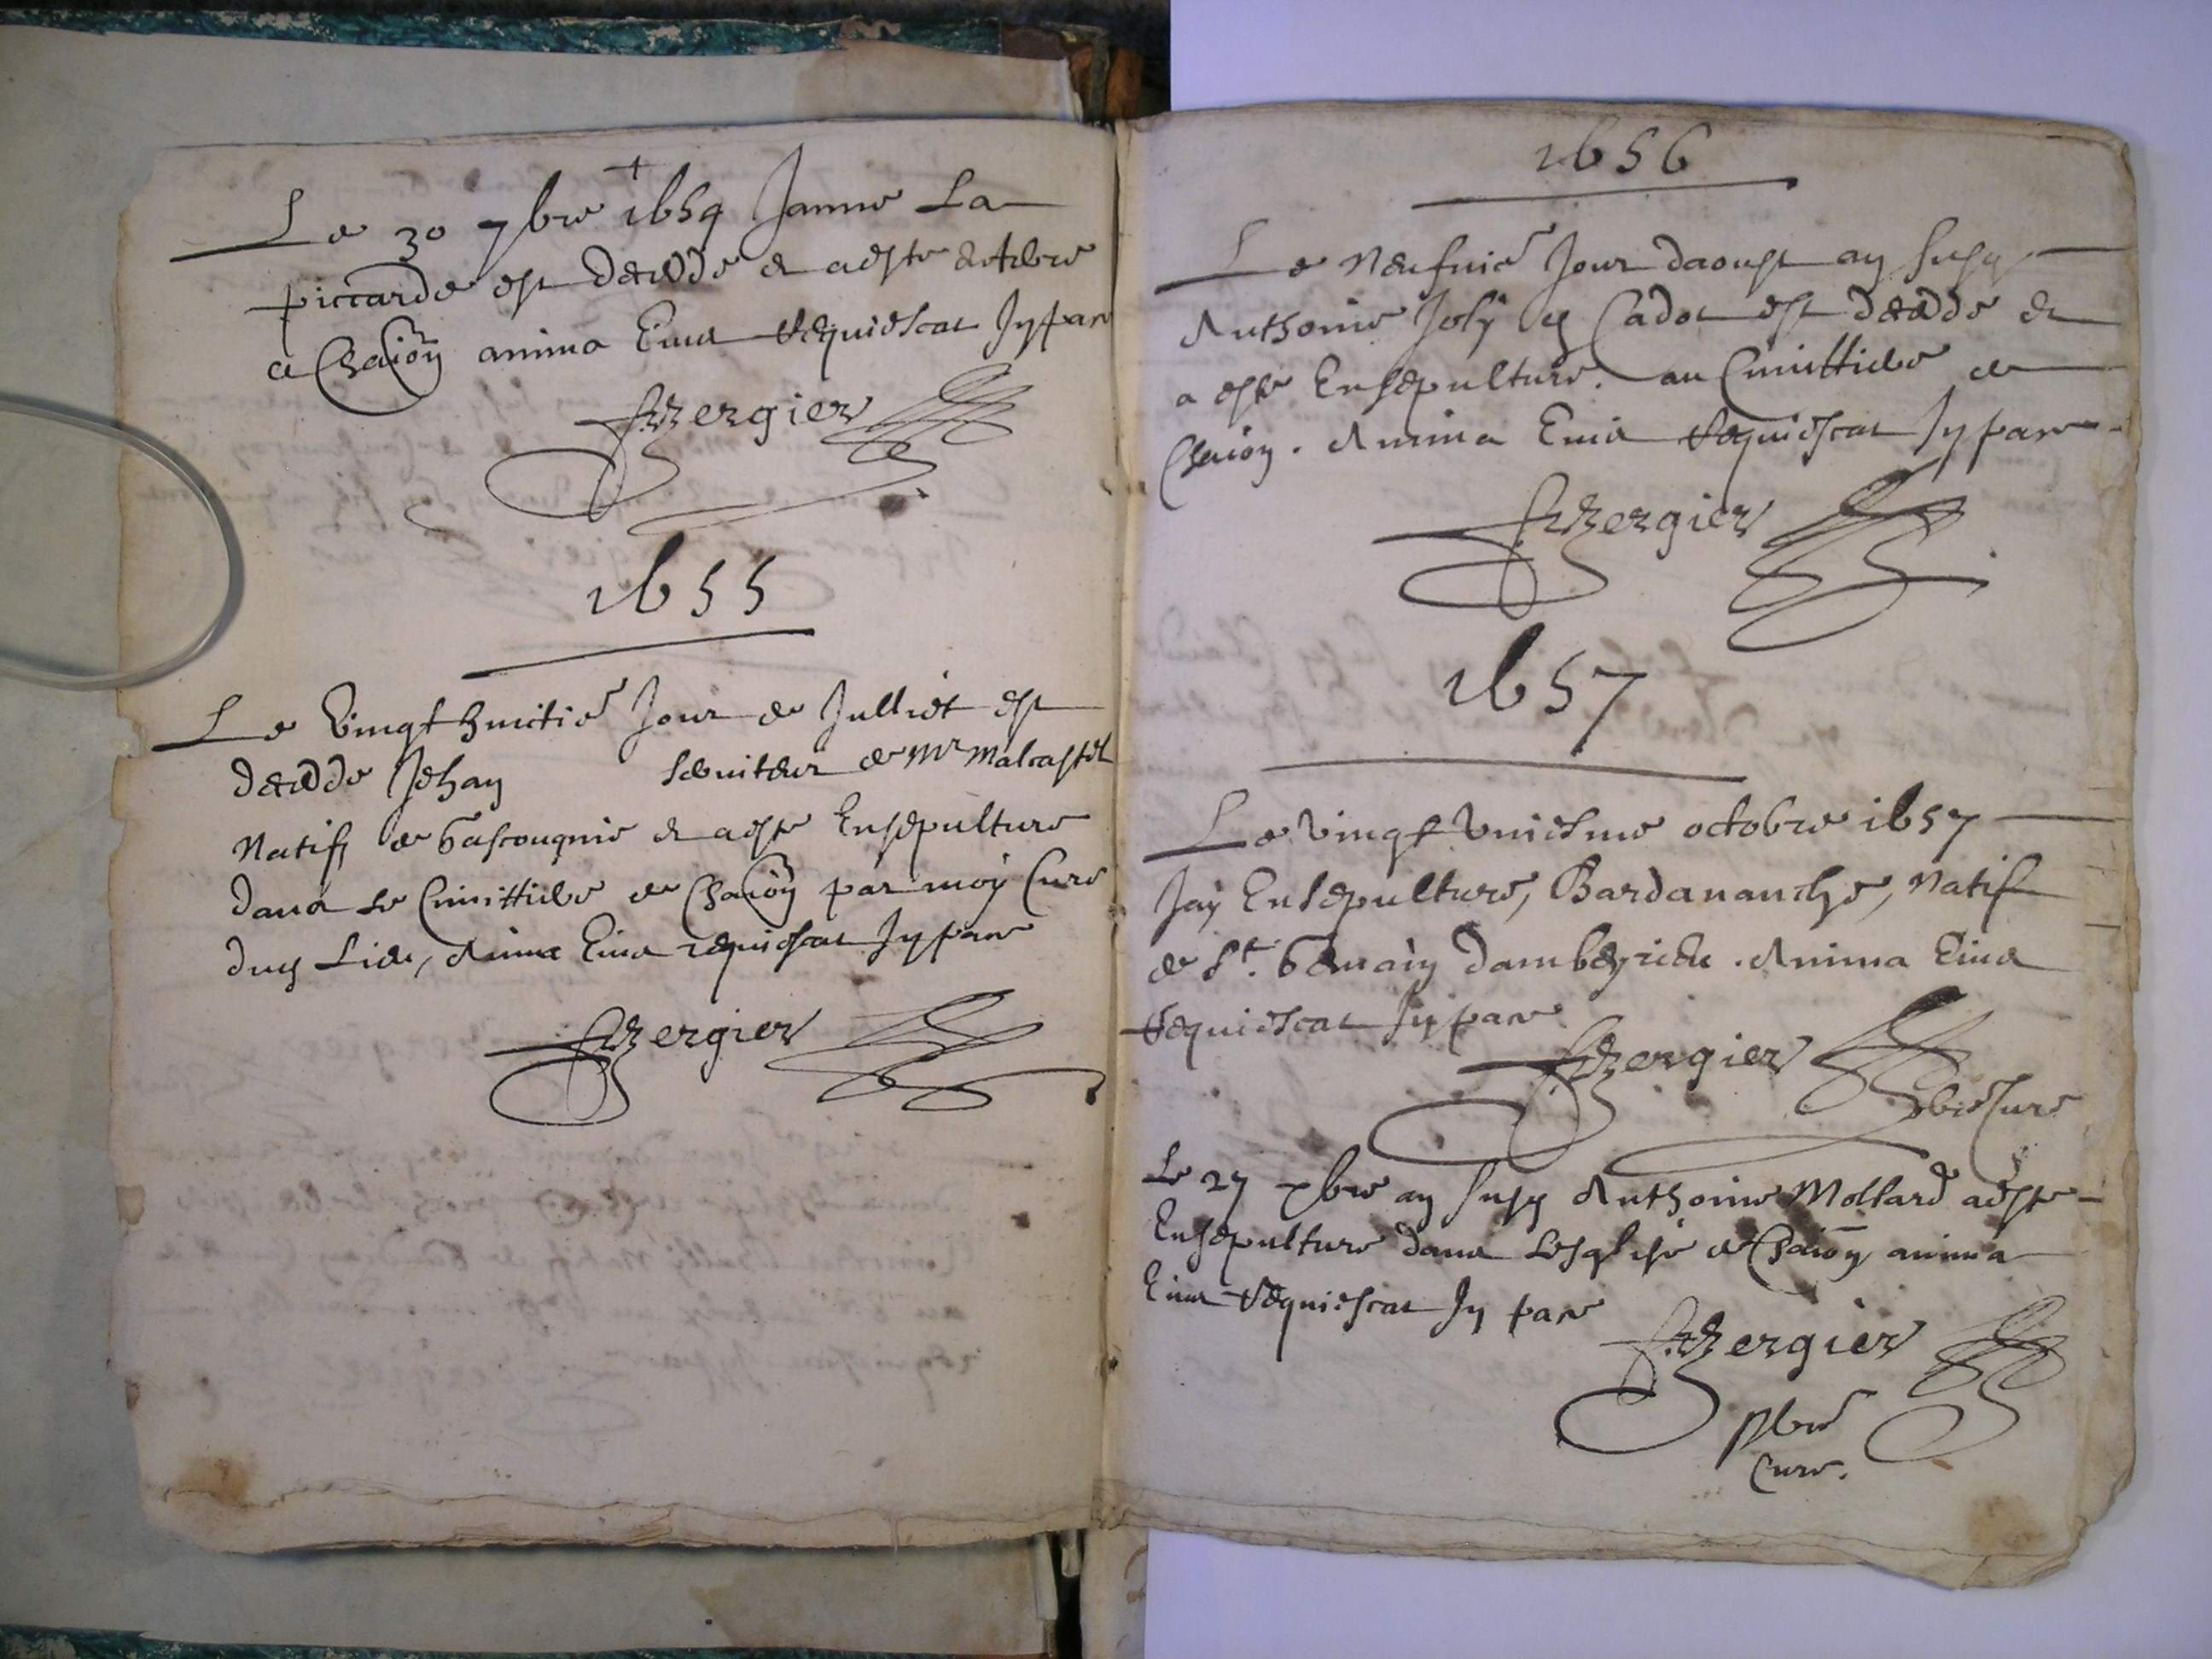 Le 30 7bre 1654 Janne La
piccarde est decedde et a este enterre
a Chavoñ anima Eius Requiescat In pace
Bergier
1655
Le Vingt huictie Jour de Julliet est
decedde Jehan serviteur de Mr Malcastel
Natif de Gascougnie et a este Ensepulture
dans le Cimittiere de Chavoñ par moy Cure
dud Lieu, Anima Eius requiescat In pace
Bergier
1656
Le Neufvie Jour daoust an susd
Anthonie Joly d Cadot est decedde et
a este Ensepulture. au Cimittiere de
Chavon. Anima Eius Requiescat In pace
Bergier
1657
Le Vingt Uniesme octobre 1657
Jay Ensepulture, Bardananche, Natif
de St. Germain dambeyrieu. Anima Eius
Requiescat In pace
Bergier
pbre Cure
Le 27 xbre an susd Anthoine Mollard a este
Ensepulture dans Lesglise de Chavon anima
Eius Requiescat In pace
Bergier
pbre
Cure.